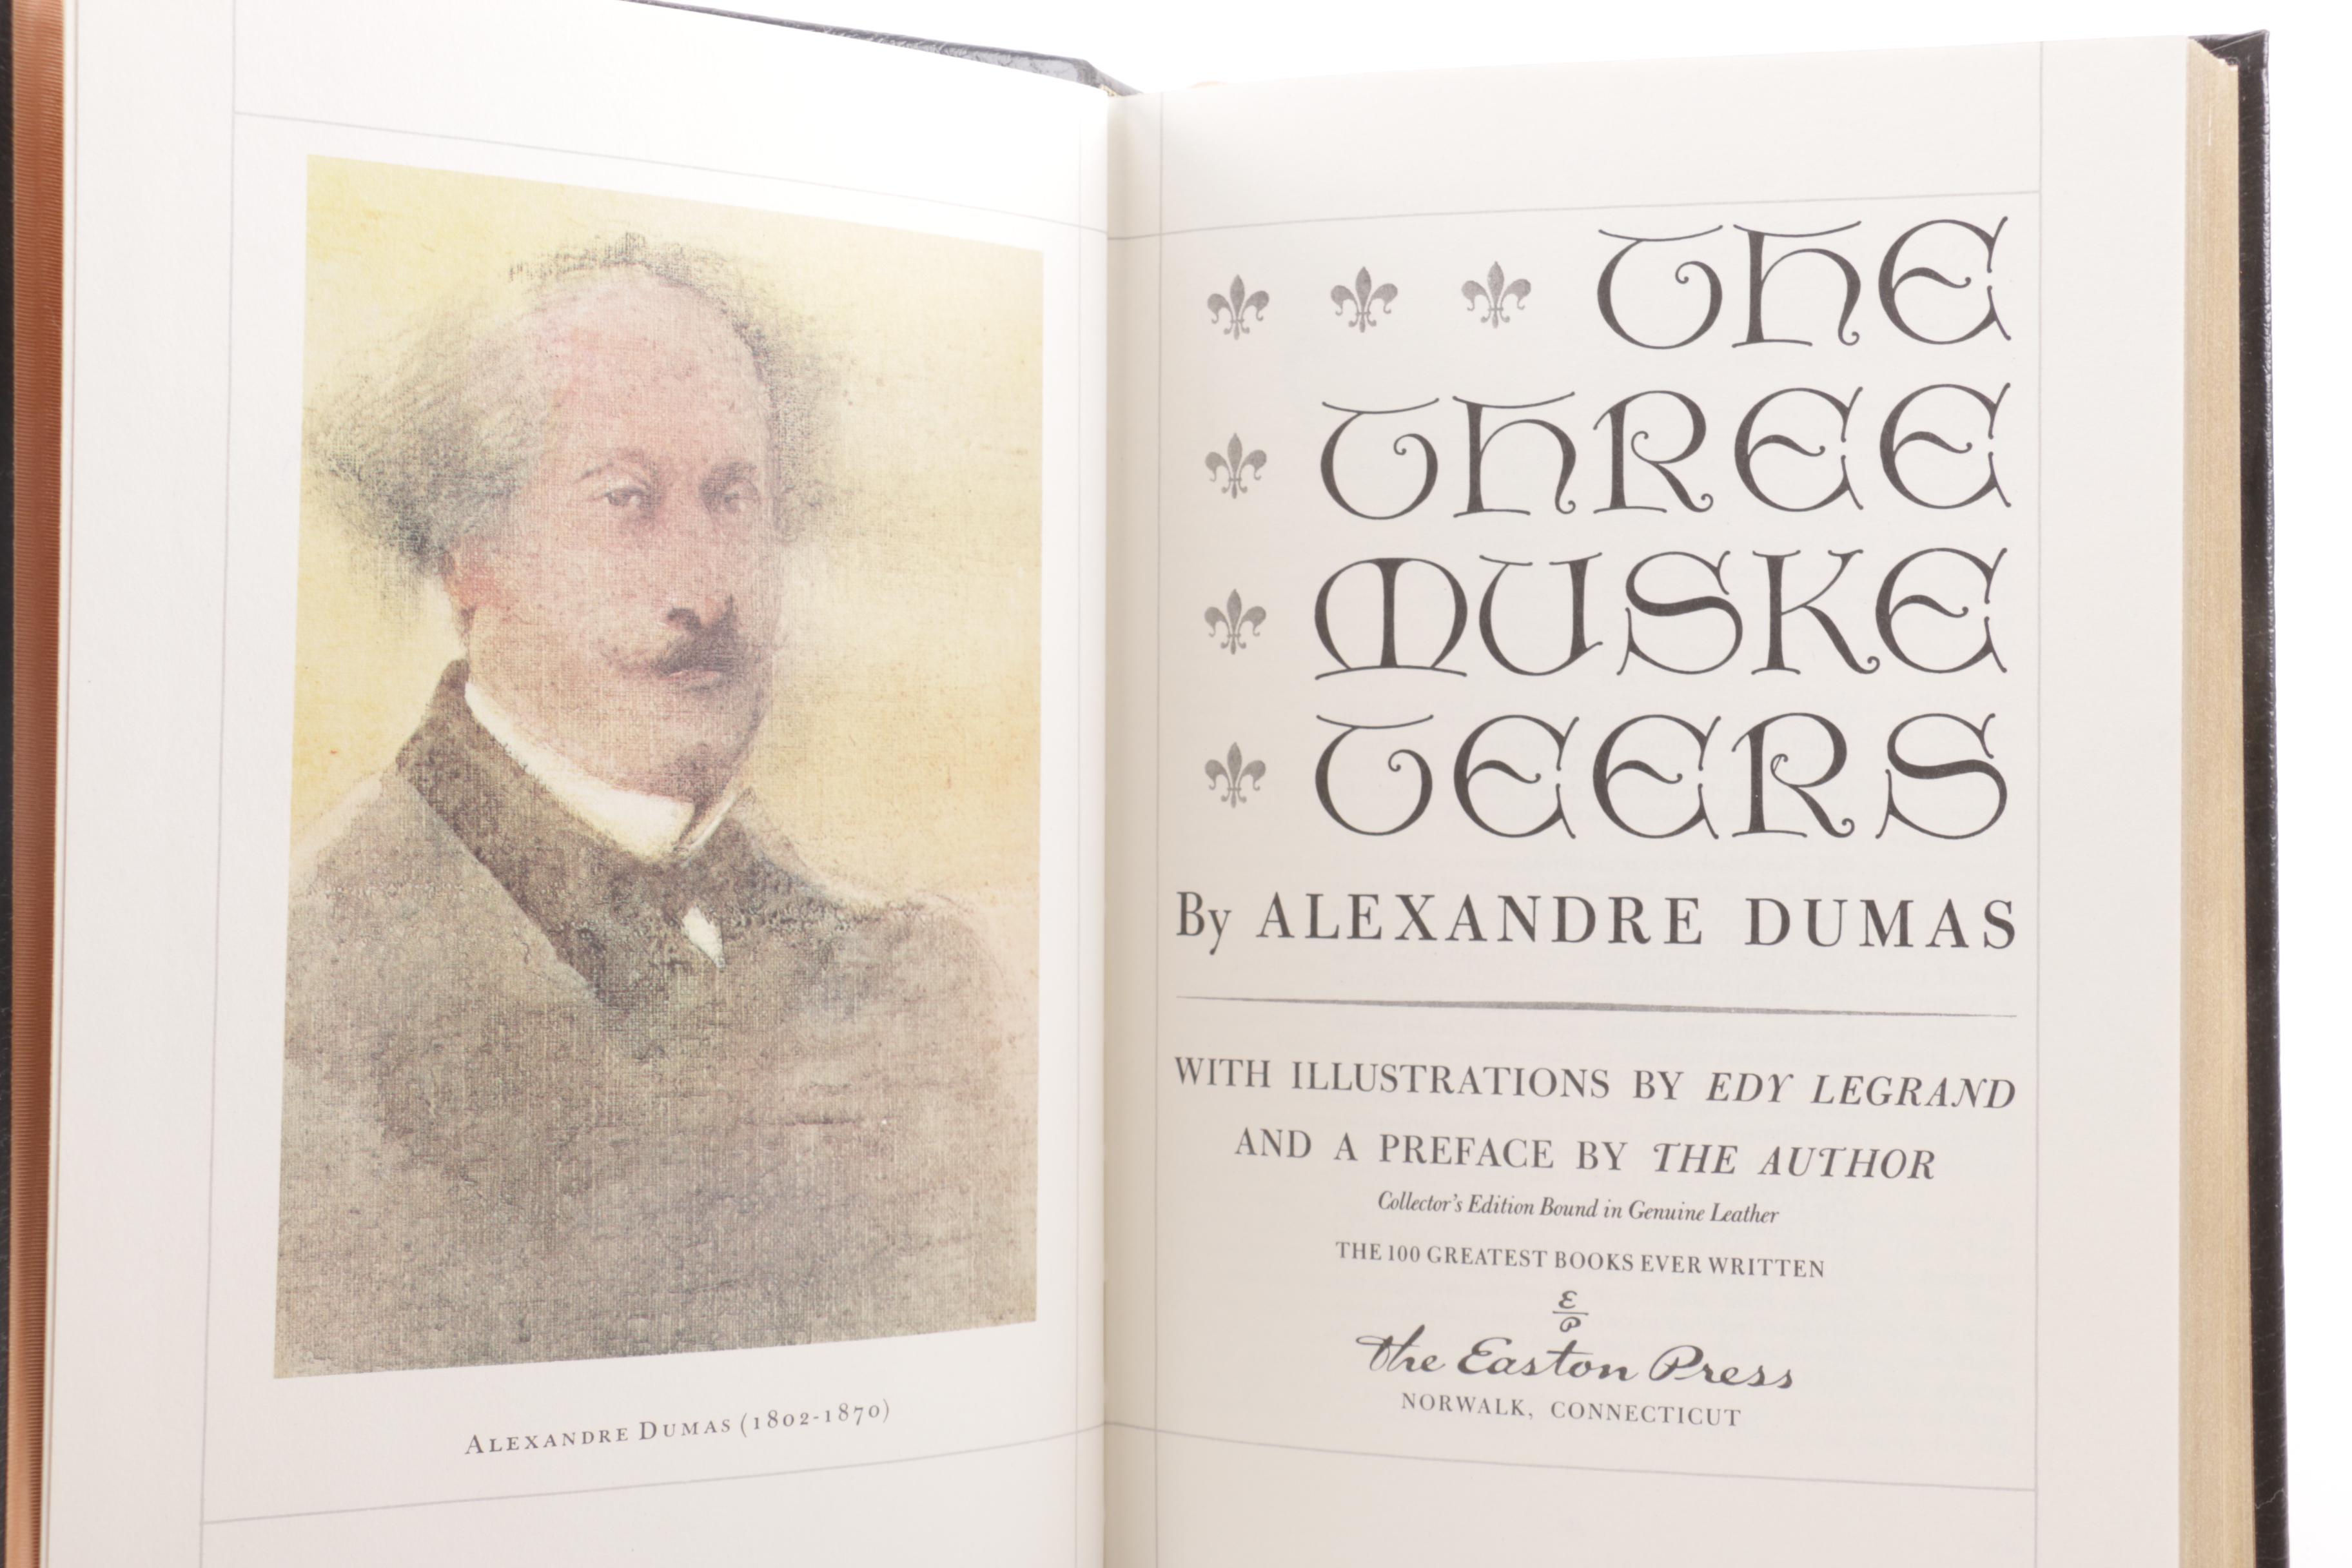 ALEXANDRE DUMAS (1802-1870)
THE
THREE
MUSKE
TEERS
By ALEXANDRE DUMAS
WITH ILLUSTRATIONS BY EDY LEGRAND
AND A PREFACE BY THE AUTHOR
Collector's Edition Bound in Genuine Leather
THE 100 GREATEST BOOKS EVER WRITTEN
E
P
The Easton Press
NORWALK, CONNECTICUT